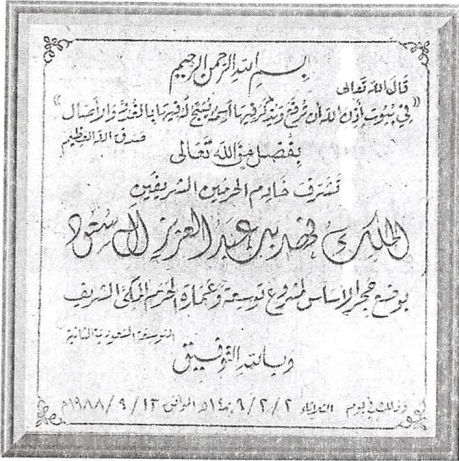 بسم الله الرحمن الرحيم
قال الله تعالى
« في بيوت أذن الله أن ترفع ويذكر فيها اسمه يسبح له فيها بالغدو والآصال »
صدق الله العظيم
بفضل من الله تعالى
تشرف خادم الحرمين الشريفين
الملك فهد بن عبد العزيز آل سعود
بوضع حجر الأساس لمشروع توسعة وعمارة الحرم المكي الشريف
التوسعة السعودية الثانية
وبالله التوفيق
وذلك في يوم الثلاثاء ٢/٢/١٤٠٩هـ الموافق ١٣/٩/١٩٨٨م